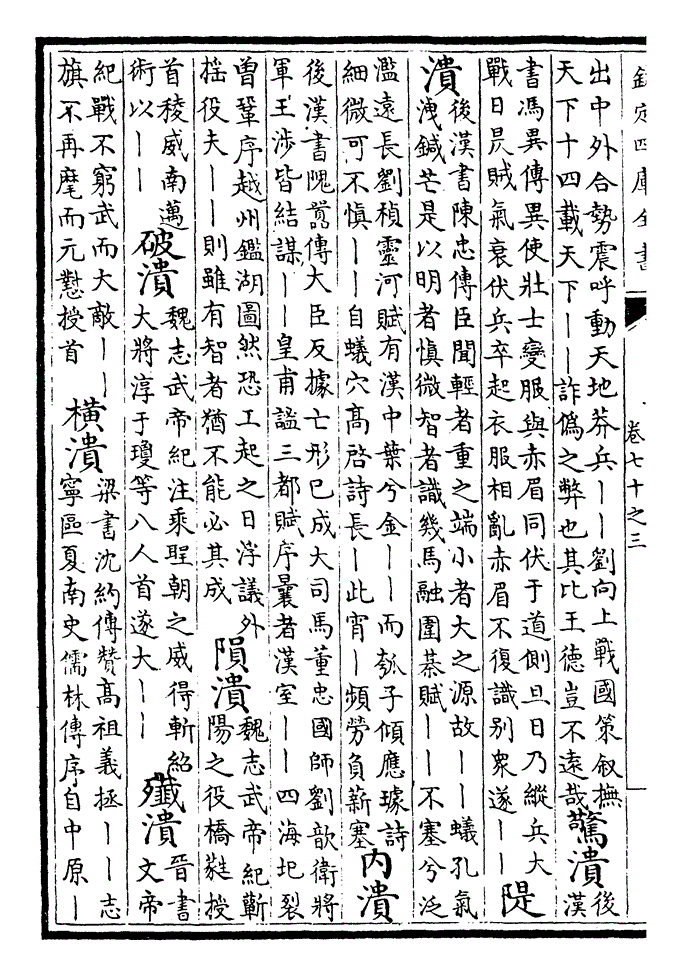 欽定四庫全書
卷七十之三
出中外合勢震呼動天地莽兵丨丨劉向上戰國策敘撫
天下十四載天下丨丨詐偽之弊也其比王德豈不遠哉
驚潰
後
漢
書馮異傳異使壯士變服與赤眉同伏于道側旦日乃縱兵大
戰日昃賊氣衰伏兵卒起衣服相亂赤眉不復識别衆遂丨丨
隄
潰
後漢書陳忠傳臣聞輕者重之端小者大之源故丨丨蟻孔氣
洩鍼芒是以明者慎微智者識幾馬融圍棊賦丨丨不塞兮泛
濫遠長劉楨靈河賦有漢中葉兮金丨丨而瓠子傾應璩詩
細微可不慎丨丨自蟻穴高啓詩長丨此宵丨頻勞負薪塞
内潰
後漢書隗囂傳大臣反據亡形已成大司馬董忠國師劉歆衛將
軍王涉皆結謀丨丨皇甫謐三都賦序曩者漢室丨丨四海圮裂
曾鞏序越州鑑湖圖然恐工起之日浮議外
揺役夫丨丨則雖有智者猶不能必其成
隕潰
魏志武帝紀蘄
陽之役橋蕤授
首稜威南邁
術以丨丨
破潰
魏志武帝紀注乘聖朝之威得斬紹
大將淳于瓊等八人首遂大丨丨
殲潰
晉書
文帝
紀戰不窮武而大敵丨丨
旗不再麾而元憝授首
橫潰
梁書沈約傳贊高祖義拯丨丨志
寧區夏南史儒林傳序自中原丨